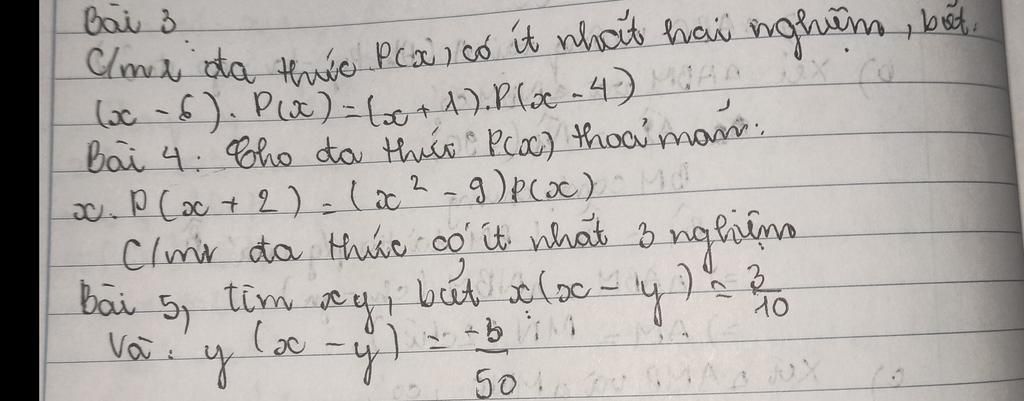 Bài 3
C/mr đa thức P(x) có ít nhất hai nghiệm, biết.
(x - 6). P(x) = (x + 1). P(x - 4)
Bài 4. Cho đa thức P(x) thoả mãn:
x. P(x + 2) = (x² - 9) P(x)
C/mr đa thức có ít nhất 3 nghiệm
Bài 5, tìm x y, biết x(x - y) = 3/10
Và: y (x - y) = -3/50